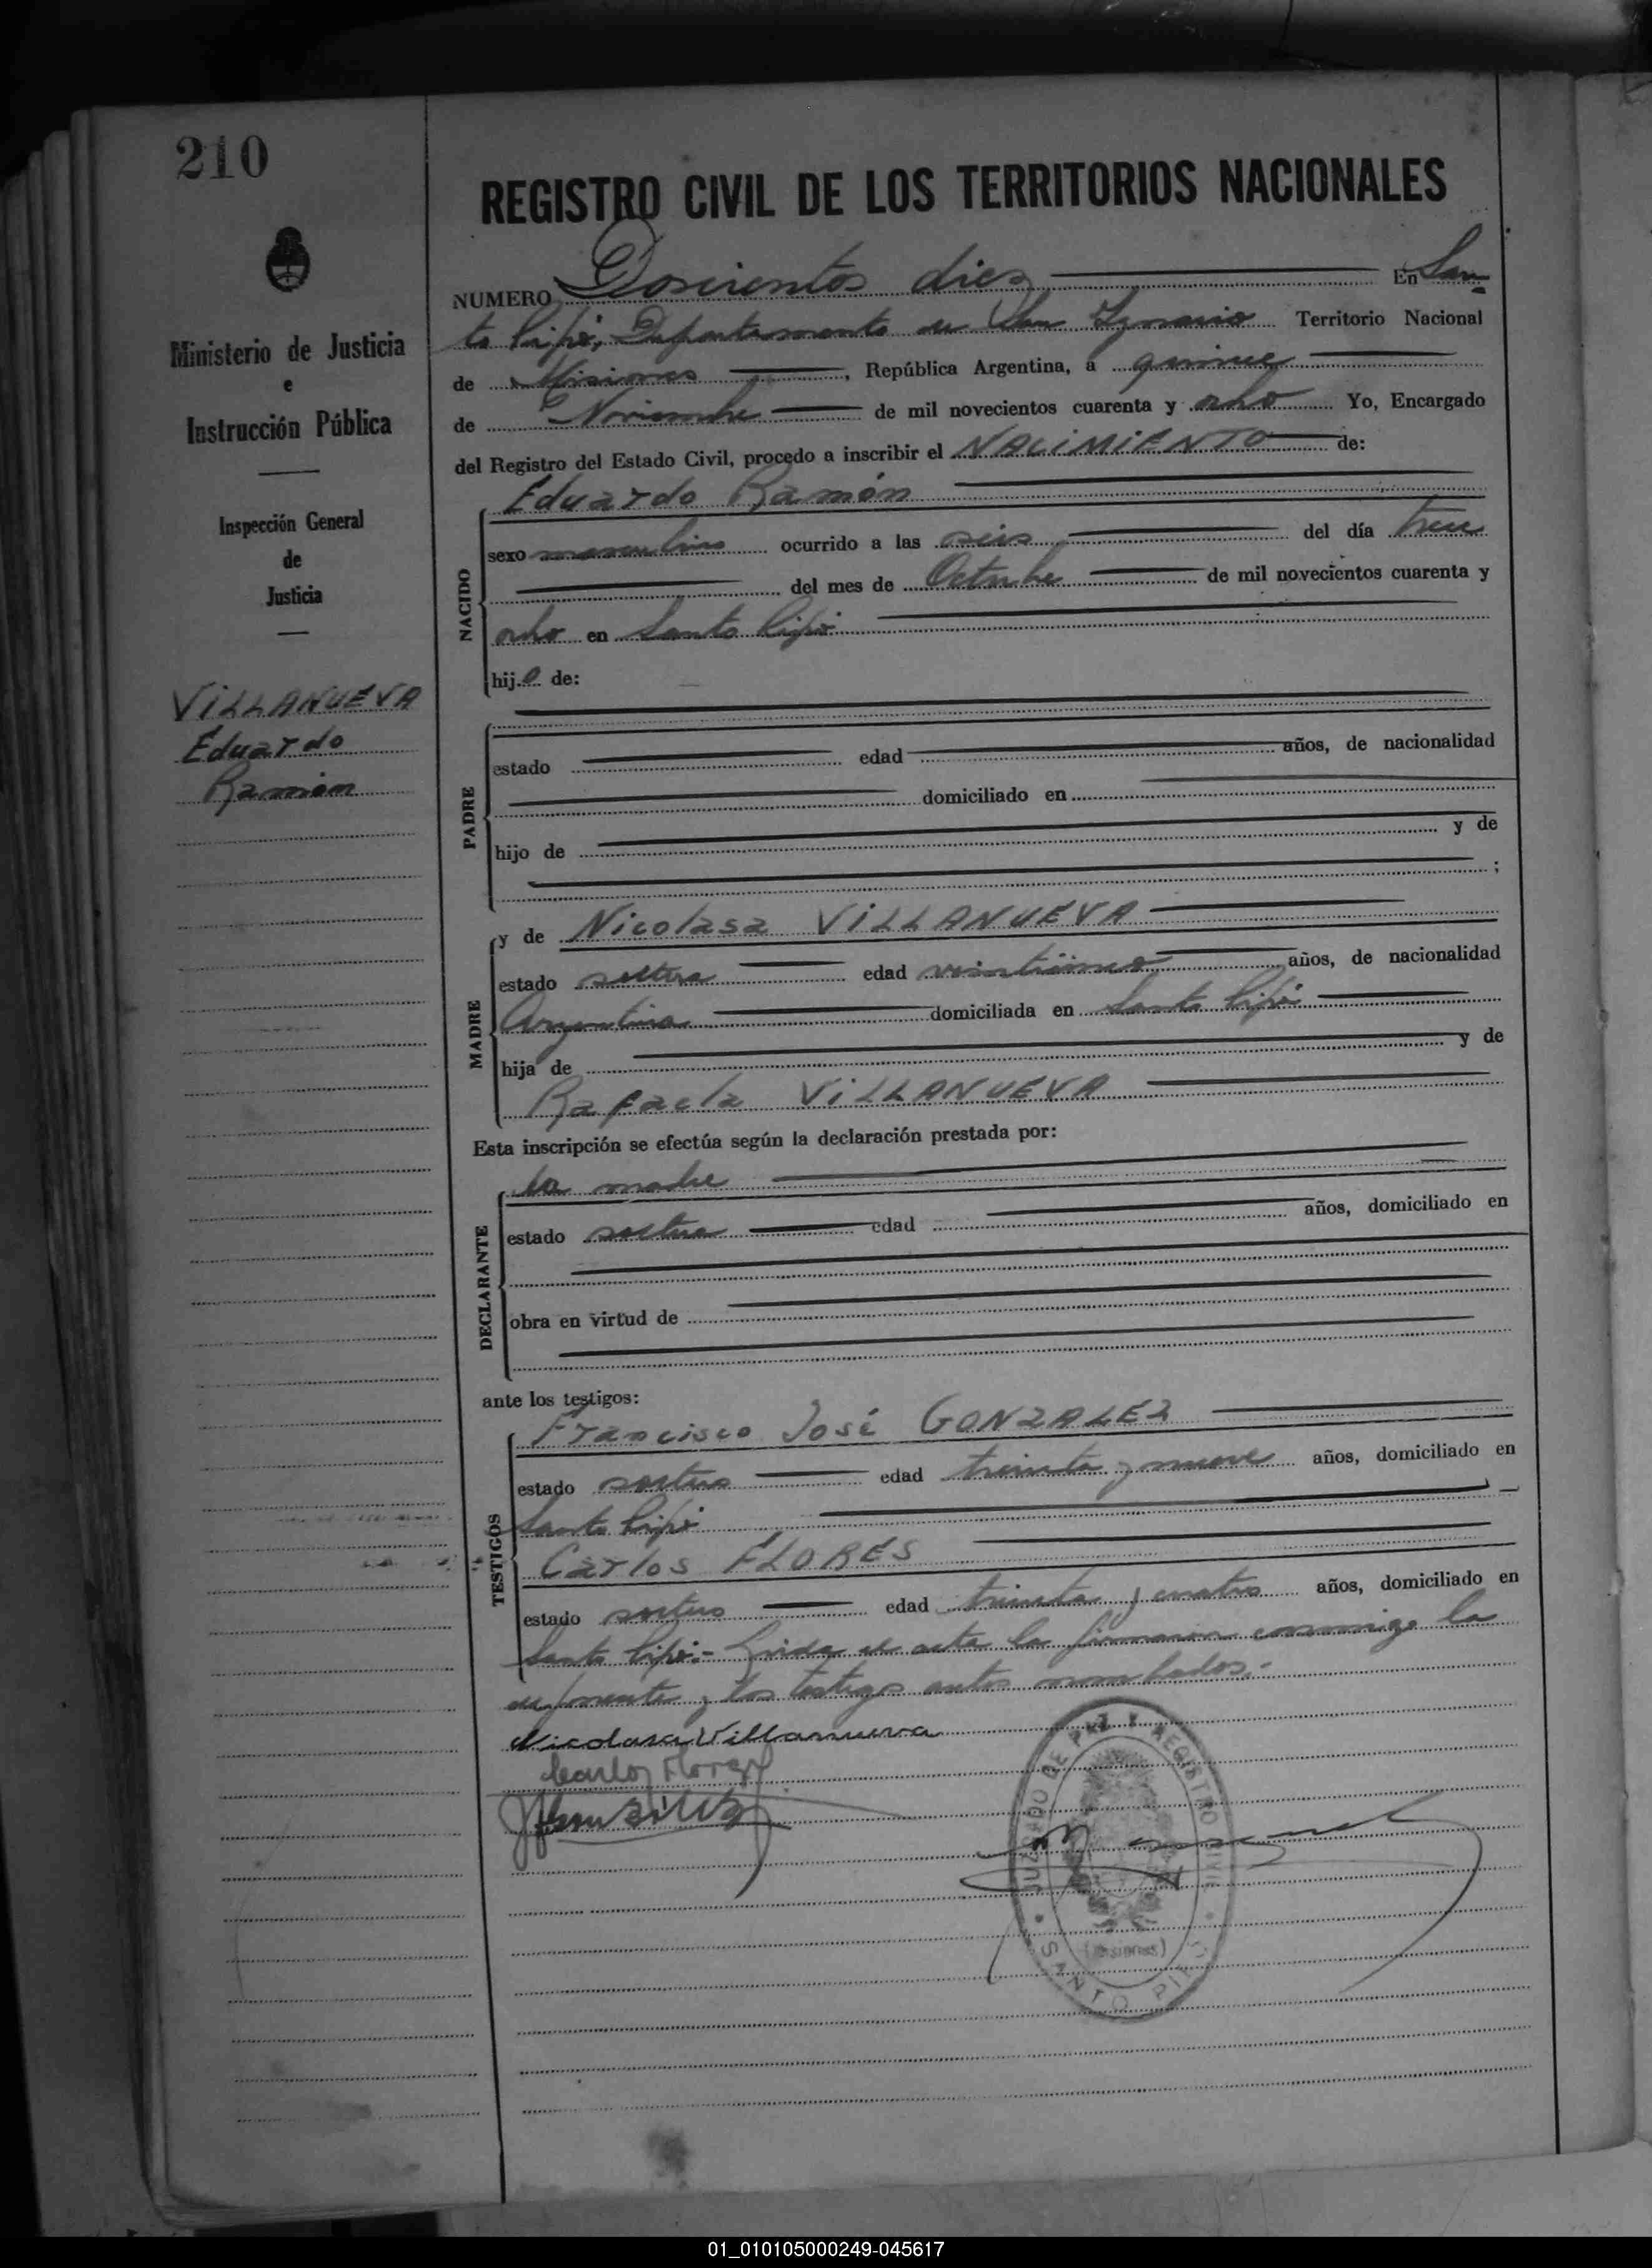 210
REGISTRO CIVIL DE LOS TERRITORIOS NACIONALES
NUMERO Doscientos diez En San
to Pipó, Departamento de San Ignacio Territorio Nacional
de Misiones, República Argentina, a quince
de Noviembre de mil novecientos cuarenta y ocho Yo, Encargado
del Registro del Estado Civil, procedo a inscribir el NACIMIENTO de:
Ministerio de Justicia
e
Instrucción Pública
Inspección General
de
Justicia
VILLANUEVA
Eduardo
Ramón
NACIDO
Eduardo Ramón
sexo masculino ocurrido a las seis del día trece
del mes de Octubre de mil novecientos cuarenta y
ocho en Santo Pipó
hijo de:
PADRE
estado edad años, de nacionalidad
domiciliado en
hijo de y de
;
MADRE
y de Nicolasa VILLANUEVA
estado soltera edad años, de nacionalidad
Argentina domiciliada en Santo Pipó
hija de y de
Rafaela VILLANUEVA
Esta inscripción se efectúa según la declaración prestada por:
DECLARANTE
la madre
estado soltera edad años, domiciliado en
obra en virtud de
ante los testigos:
TESTIGOS
Francisco José GONZALEZ
estado soltero edad treinta y nueve años, domiciliado en
Santo Pipó
Carlos FLORES
estado soltero edad treinta y cuatro años, domiciliado en
Santo Pipó.- Leida el acta la firmaron conmigo la
exponente y los testigos antes nombrados.-
Nicolasa Villanueva
Carlos Flores
JUZGADO DE PAZ Y REGISTRO CIVIL
SANTO PIPO
(MISIONES)
01_010105000249-045617